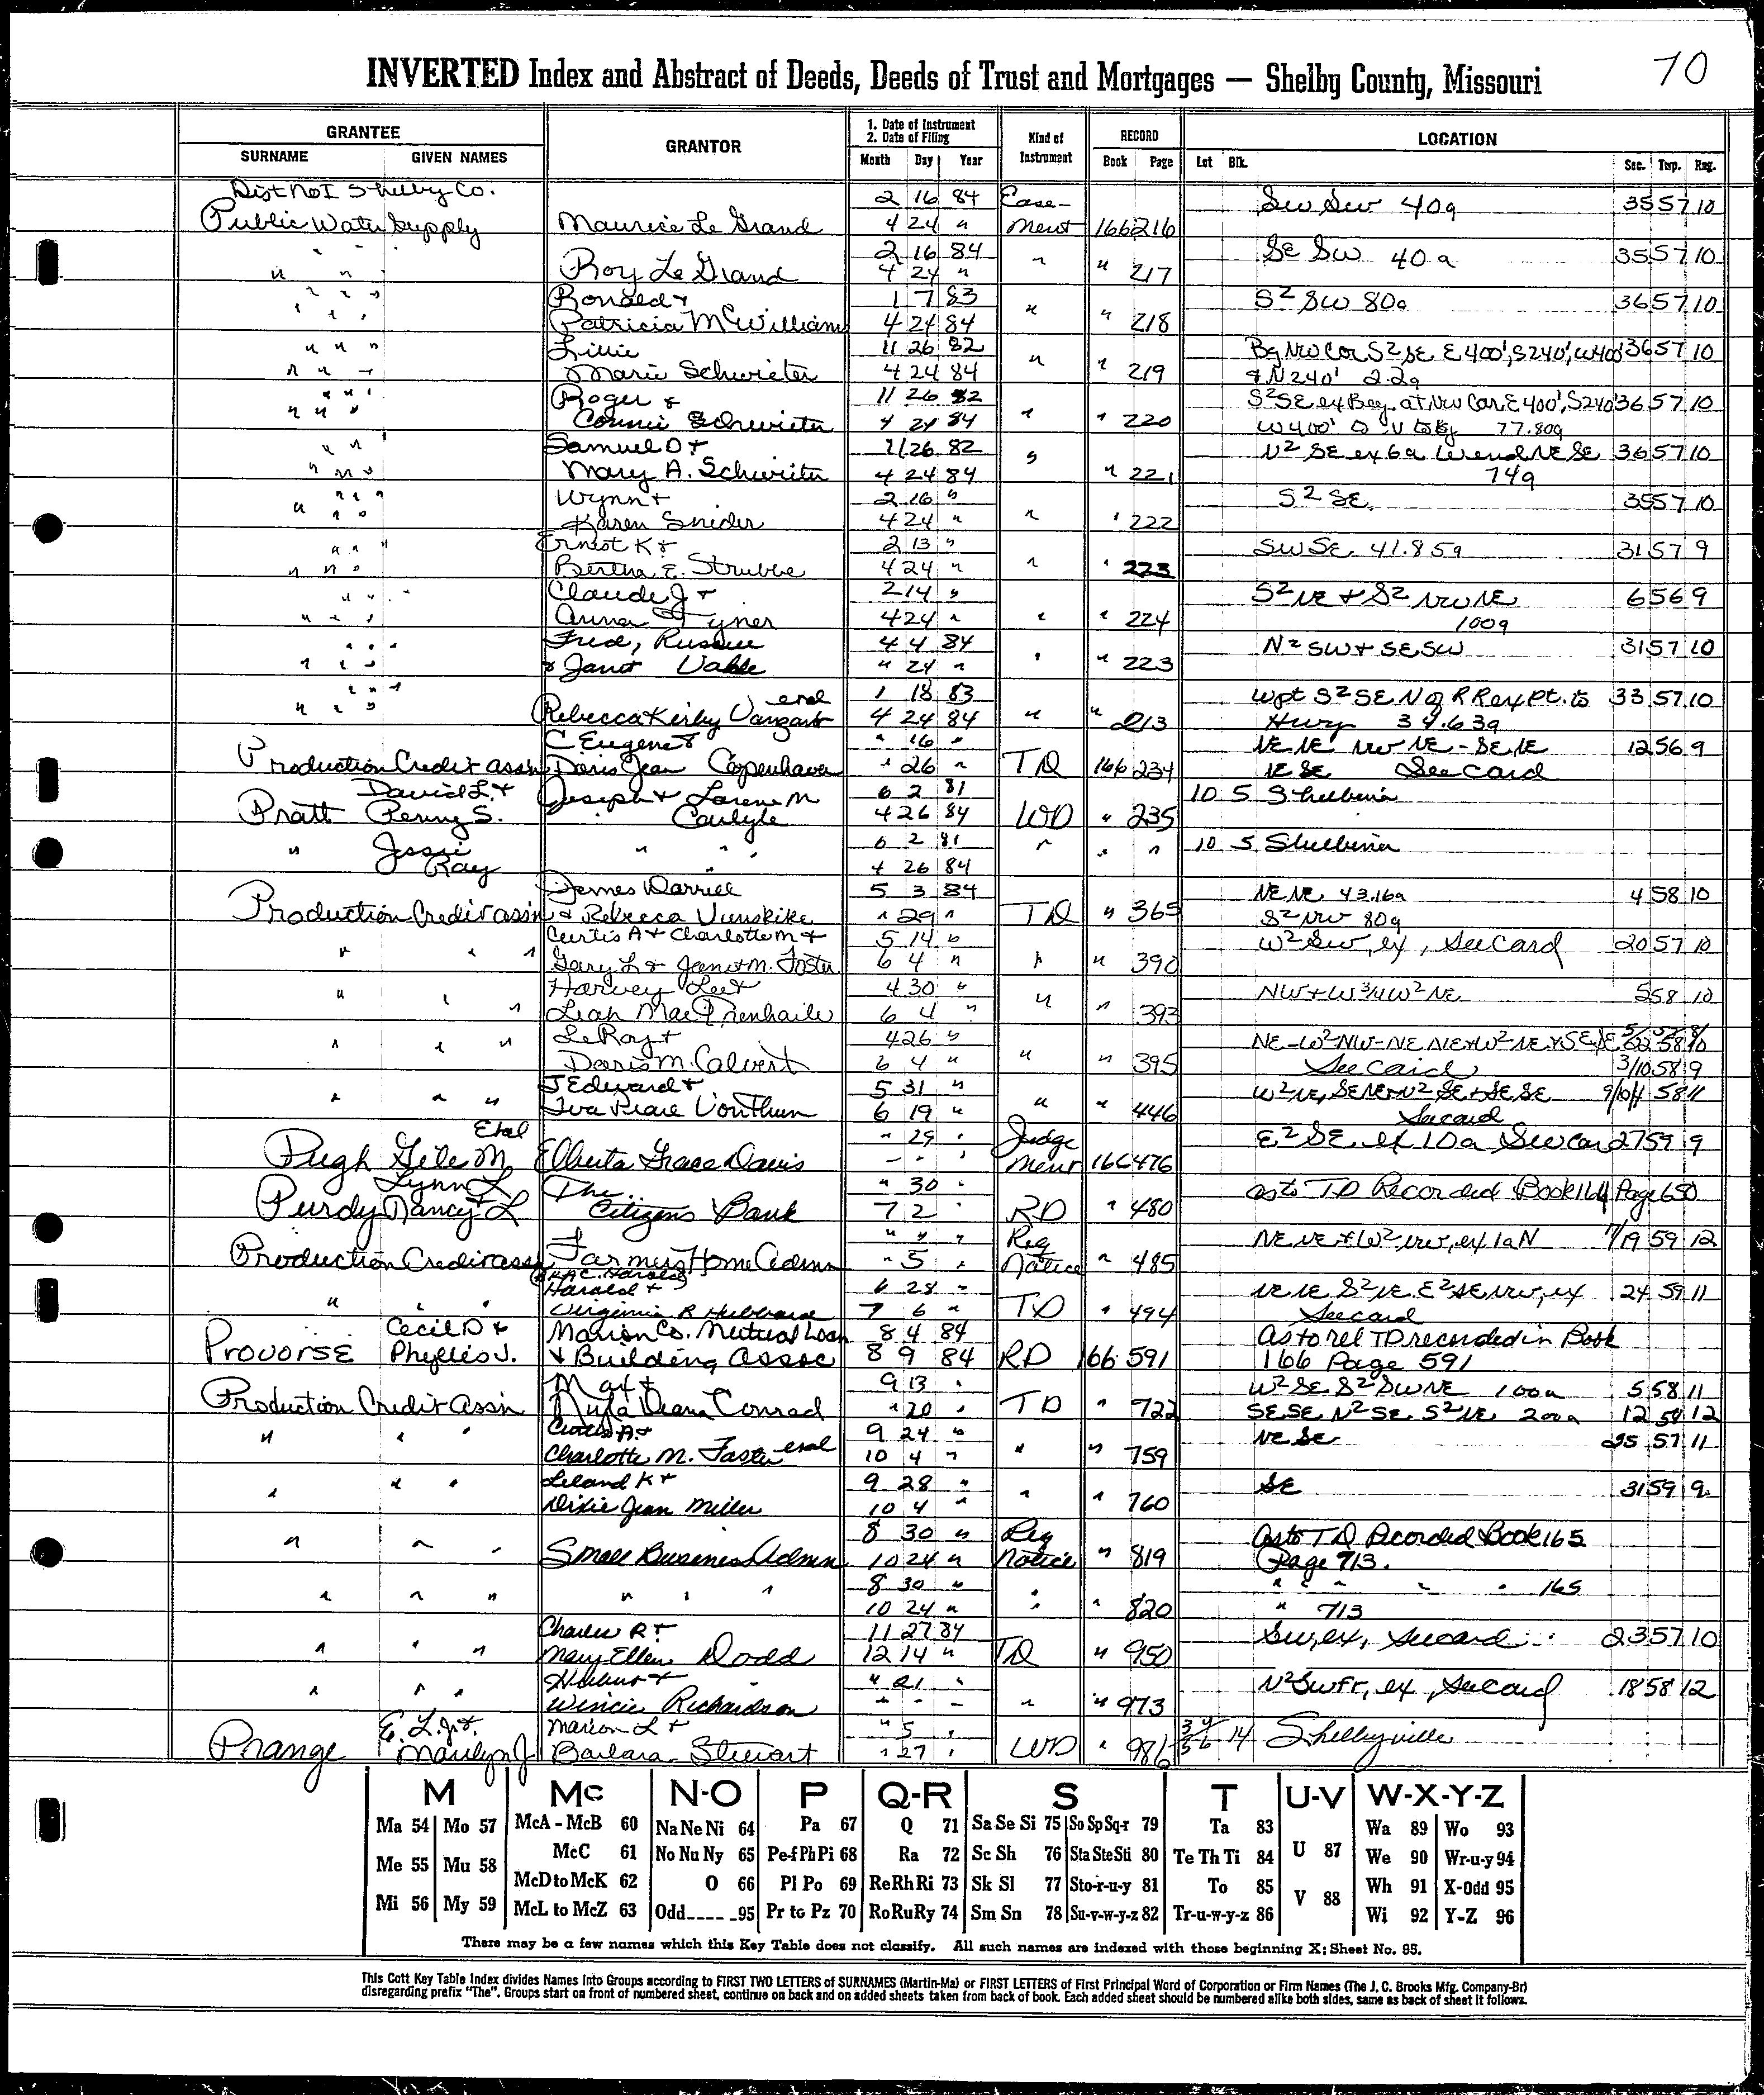 70
INVERTED Index and Abstract of Deeds, Deeds of Trust and Mortgages — Shelby County, Missouri
GRANTEE
SURNAME GIVEN NAMES
GRANTOR
1. Date of Instrument
2. Date of Filing
Month Day Year
Kind of Instrument
RECORD
Book Page
LOCATION
Lot Blk. Sec. Twp. Rng.
Dist No I Shelby Co. 2 16 84 Ease- SW SW 40a 35 57 10
Public Water Supply Maurice Le Grand 4 24 " ment 166 216
2 16 84 SE SW 40a 35 57 10
" " Roy Le Grand 4 24 " " " 217
" " " Ronald + 1 7 83 S2 SW 80a 36 57 10
" " Patricia McWilliams 4 24 84 " " 218
" " " Lillie 11 26 82 Bg NW Cor S2 SE E 400', S240', W400' 36 57 10
" " " Marie Schwieter 4 24 84 " " 219 & N240' 2.2a
" " " Roger & 11 26 82 S2SE ex Beg. at NW Cor E 400', S240' 36 57 10
" " " Connie Schwieter 4 24 84 " " 220 W400' 77.80a
" " Samuel D + 11 26 82 N2 SE ex 6a W end NE SE 36 57 10
" " " Mary A. Schwieter 4 24 84 " " 221 74a
" " " Wynn + 2 16 " S2 SE 35 57 10
" " " Karen Snider 4 24 " " " 222
" " " Ernest K + 2 13 " SW SE 41.85a 31 57 9
" " " Bertha E. Strubbe 4 24 " " " 223
" " " Claude J + 2 14 " S2 NE + S2 NW NE 6 56 9
" " " Anna F Tyner 4 24 " " " 224 100a
" " " Fred, Russell 4 4 84 N2 SW + SE SW 31 57 10
" " " & Janet Vahle " 24 " " " 223
" " " etal 1 18 83 W pt S2 SE N of RR ex pt. to 33 57 10
" " " Rebecca Kirby Vangart 4 24 84 " " 213 Hwy 34.63a
C Eugene & " 16 " NE NE NW NE - SE NE 12 56 9
Production Credit assn Doris Jean Copenhaver " 26 " TD 166 234 NE SE See card
David L. + Joseph + Lorene M 6 2 81 10 5 Shelbina
Pratt Penny S. Carlyle 4 26 84 WD " 235
" Jessie " " " 6 2 81 " " " 10 5 Shelbina
Ray 4 26 84
James Darrell 5 3 84 NE NE 43.16a 4 58 10
Production Credit assn & Rebecca Vanskike " 29 " TD " 365 S2 NW 80a
Curtis A + Charlotte M + 5 14 " W2 SW, ex, See Card 20 57 10
" " " Gary L + Janet M. Foster 6 4 " " " 390
Harvey Lee + 4 30 " 5 58 10
" " " Leah Mae Prenhaile 6 4 " " " 393
LeRoy + 4 26 " NE-W2 NW-NE NE+W2-NE+SE
" " " Doris M. Calvert 6 4 " " " 395 See Card 3/10 58 9
J Edward + 5 31 " W2 NE, SE NE+N2 SE+SE SE 9/10/11 58 11
" " " Iva Pearl VonThun 6 19 " " " 446 See card
Etal " 29 " Judge E2 SE ex 10a See Car 27 59 9
Pugh Gile M. Elberta Grace Davis " " " ment 166 476
Lynn L. The " 30 " as to TD Recorded Book 164 Page 650
Purdy Nancy L Citizens Bank 7 2 " RD " 480
" " " Req NE NE + W2 NW, ex 1a N 7/19 59 12
Production Credit assn Farmers Home Admn " 5 " Notice " 485
AKA C. Harold
Harold + 6 28 " NE NE S2 NE E2 SE NW, ex 24 59 11
" " " Virginia R Hubbard 7 6 " TD " 494 See card
Cecil D + Marion Co. Mutual Loan 8 4 84 As to rel TD recorded in Book
Provorse Phyllis J. & Building Assoc 8 9 84 RD 166 591 166 Page 591
9 13 " W2 SE S2 SW NE 100a 5 58 11
Production Credit Assn Deana Conrad " 20 " TD " 722 SE SE N2 SE S2 NE 200a 12 58 12
Curtis A + 9 24 " NE SE 25 57 11
" " " Charlotte M. Foster etal 10 4 " " " 759
Leland K + 9 28 " SE 31 59 9
" " " Dixie Jean Miller 10 4 " " " 760
8 30 " Req As to TD Recorded Book 165
" " " Small Business Admn 10 24 " Notice " 819 Page 713.
8 30 " " " " " " 165
" " " " " " 10 24 " " " 820 " 713
Charles R + 11 27 84 SW, ex, See card 23 57 10
" " " Mary Ellen Dodd 12 14 " TD " 950
" 21 " N2 SW Fr, ex, See card 18 58 12
" " " Wincie Richardson " " " " " 973
E. L. Jr + Marion L + " 5 " 3 4
Prange Marilyn J Barbara Stewart " 27 " WD " 986 5 6 14 Shelbyville
M Mc N-O P Q-R S T U-V W-X-Y-Z
Ma 54 Mo 57 McA - McB 60 Na Ne Ni 64 Pa 67 Q 71 Sa Se Si 75 So Sp Sq-r 79 Ta 83 U 87 Wa 89 Wo 93
Me 55 Mu 58 McC 61 No Nu Ny 65 Pe-f Ph Pi 68 Ra 72 Sc Sh 76 Sta Ste Sti 80 Te Th Ti 84 We 90 Wr-u-y 94
McD to McK 62 O 66 Pl Po 69 Re Rh Ri 73 Sk Sl 77 Sto-r-u-y 81 To 85 V 88 Wh 91 X-Odd 95
Mi 56 My 59 McL to McZ 63 Odd_____95 Pr to Pz 70 Ro Ru Ry 74 Sm Sn 78 Su-v-w-y-z 82 Tr-u-w-y-z 86 Wi 92 Y-Z 96
There may be a few names which this Key Table does not classify. All such names are indexed with those beginning X; Sheet No. 95.
This Cott Key Table Index divides Names Into Groups according to FIRST TWO LETTERS of SURNAMES (Martin-Ma) or FIRST LETTERS of First Principal Word of Corporation or Firm Names (The J. C. Brooks Mfg. Company-Br)
disregarding prefix "The". Groups start on front of numbered sheet, continue on back and on added sheets taken from back of book. Each added sheet should be numbered alike both sides, same as back of sheet it follows.